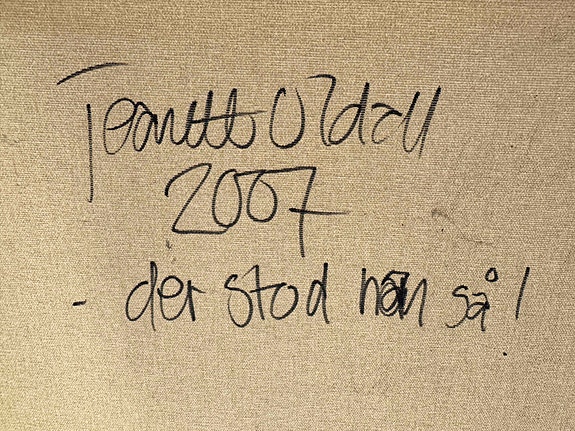 Jeanett Uldall
2007
- der stod han så!